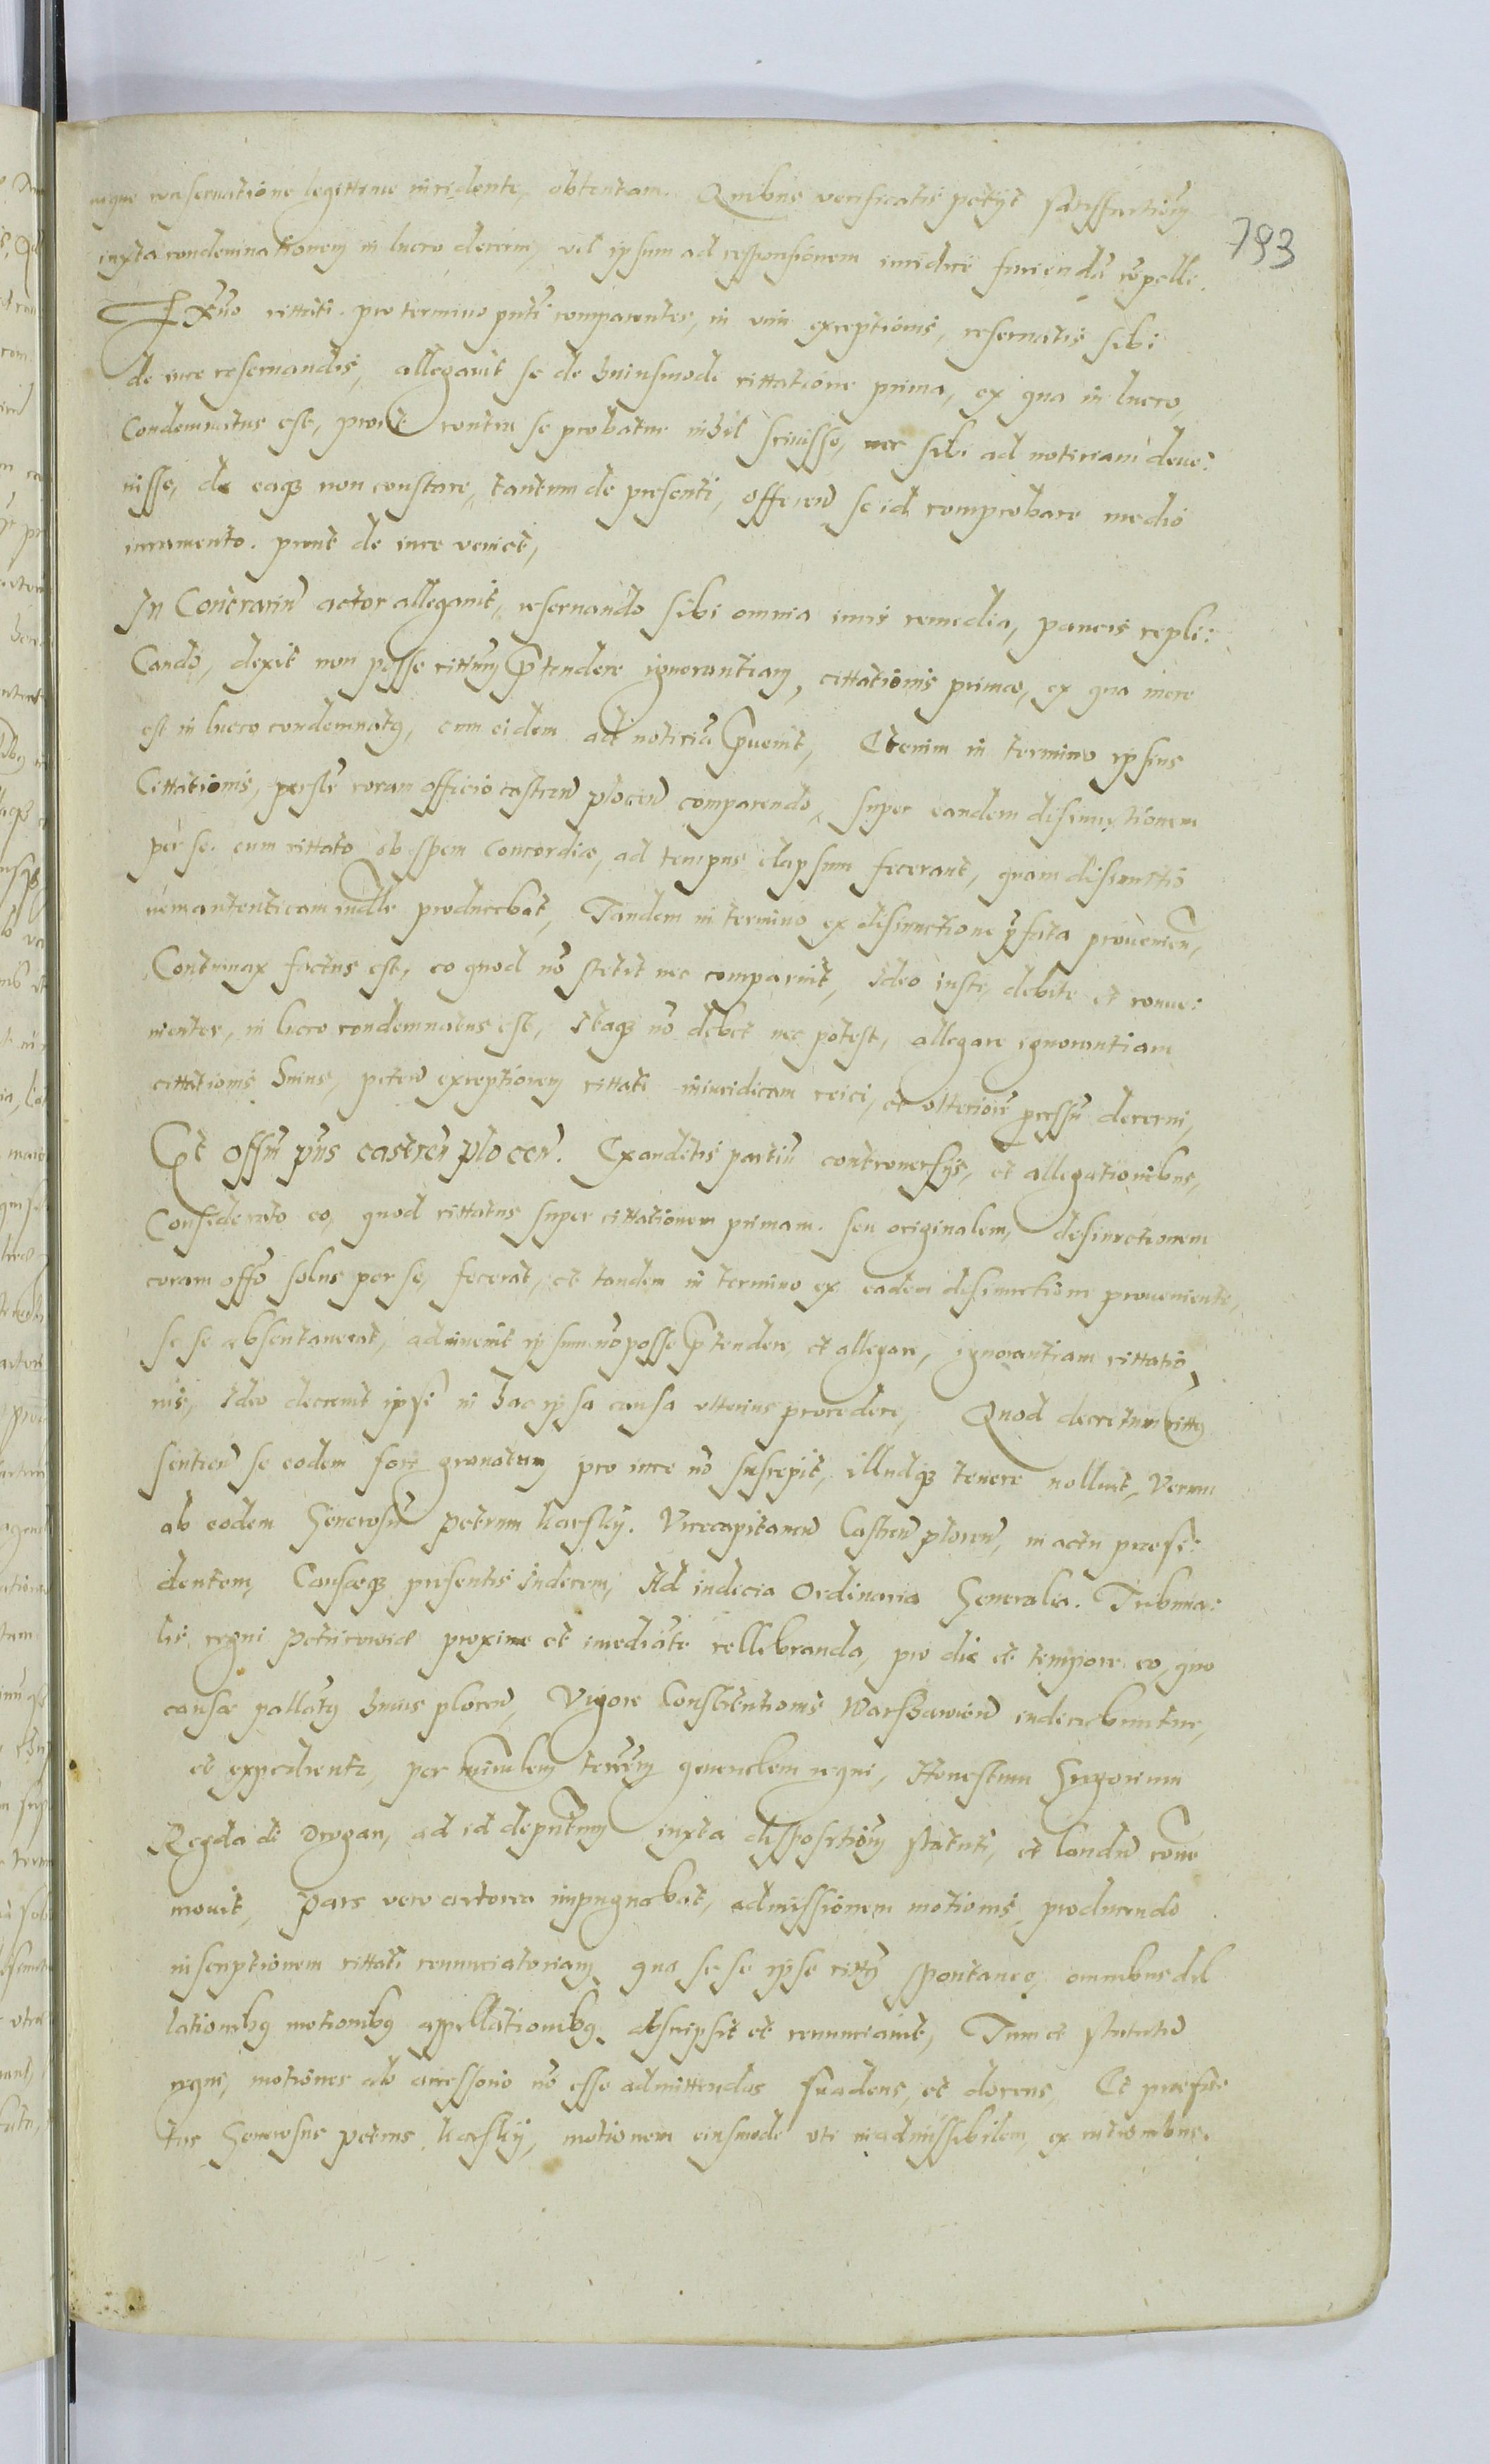 793
conservatione legittime incidente, obtentam. Quibus verificatis petyt satisfactiōnē
iuxta condemnationem in lucro decerni, vel ipsum ad responsionem iuridice faciendā cōpelli.
Ex quo cittati. pro termino pn̄ti comparentes, in vim exceptionis, reservatis sibi
de iure reservandis, allegavit se de huiusmodi cittatione prima, ex qua in lucro
Condemnatus est, prout contra se probatur nihil scivisse, nec sibi ad noticiam deve:
nisse, de eaq̃ non constare, tantum de presenti, offeren̄ se id comprobare medio
iuramento. prout de iure veniet,
In Contrariū actor allegavit, reservando sibi omnia iuris remedia, paucis repli:
Cando, dixit non posse cittm̄ p̄tendere ignorantiam, cittationis primæ, ex qua iure
est in lucro condemnatꝯ, cum eidem ad noticiā p̄venit, Etenim in termino ipsius
Cittationis, pers̄lr coram officio castren̄ plocen̄ comparendo, super eandem disiunctionem
per se. cum cittato ob spem concordiæ, ad tempus elapsum fecerant, quam disiunctio
nem autenticam iudl̄r producebat, Tandem in termino ex disiunctione p̄fata provenien̄,
Contumax factus est, eo quod nō stetit nec comparuit, Ideo iuste, debite et conve:
nienter, in lucro condemnatus est, Itaq̃ nō debet nec potest, allegare ignorantiam
cittationis huius, peten̄ exceptionem cittati iniuridicam reici, et ulteriorē p̄cessū decerni,
Et Offm̄ pn̄s castren̄ plocen̄. Exauditis partiū controversys, et allegationibus,
Considerato eo, quod cittatus super cittationem primam. seu originalem, disiunctionem
coram offo solus per se, fecerat, et tandem in termino ex eadem disiunctione proveniente,
se se absentaverat, adinvenit ipsum nō posse p̄tendere, et allegare, ignorantiam cittatio
nis, Ideo decrevit ipsi in hac ipsa causa ulterius procedere, Quod decretum cittꝯ
sentien̄ se eodem fore gravatum, pro iure nō suscepit, illudq̃ tenere nolluit, Verum
ab eodem Generosū Petrum Karsky. Vicecapitaneū Castren̄ plocen̄, in actu præsi:
dentem, Causæq̃ presentis Iudicem, Ad iudicia Ordinaria Generalia. Tribuna:
lis, regni Petricoviæ proxime et imediate cellebranda, pro die et tempore eo, quo
causæ pallatꝯ huius plocen̄, Vigore Constitutionis Warszavien̄ iudicabuntur,
et expedientr, per generalem regni, Honestum Gregorium
Regda de Drogan, ad id deputatum iuxta dispositionē statuti, et laudū
movit, Pars vero actorea impugnabat, admissionem motionis, producendo
inscriptionem cittati renunciatoriam, qua se se ipse cittꝯ spontanee, omnibus dil
lationibꝯ motionibꝯ appellationibꝯ abscripsit et renunciavit, Tum et statutū
regni, motiones ab accessorio nō esse admittendas suadens, et docens, Et præfa
tus Generosus Petrus Karsky, motionem eiusmodi uti inadmissibilem, ex rationibus.